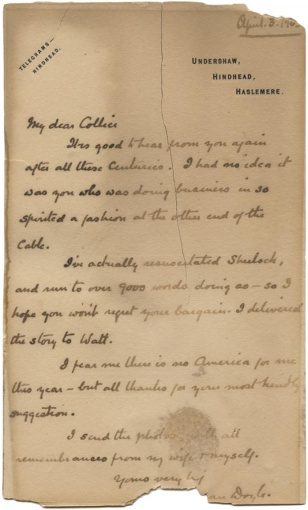 April. 3. 190
TELEGRAMS—
HINDHEAD.
UNDERSHAW,
HINDHEAD,
HASLEMERE.
My dear Collier
It is good to hear from you again
after all these Centuries. I had no idea it
was you who was doing business in so
spirited a fashion at the other end of the
Cable.
I've actually resuscitated Sherlock,
and run to over 9000 words doing so — so I
hope you won't regret your bargain. I delivered
the story to Watt.
I fear me there is no America for me
this year — but all thanks for your most kindly
suggestion.
I send the photos with all
remembrances from my wife & myself.
Yours very
an Doyle.